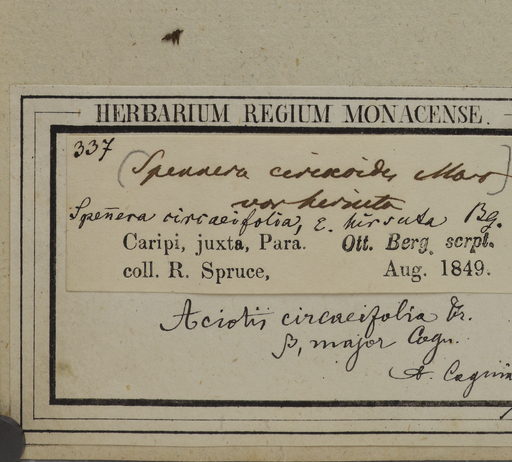 HERBARIUM REGIUM MONACENSE.
337
(Spennera circaeoides Mart)
var hirsuta
Speñera circaeifolia, ε. hirsuta Bg.
Caripi, juxta, Para. Ott. Berg. scrpt.
coll. R. Spruce, Aug. 1849.
Aciotis circaeifolia Tr.
β, major Cogn.
A. Cogniau